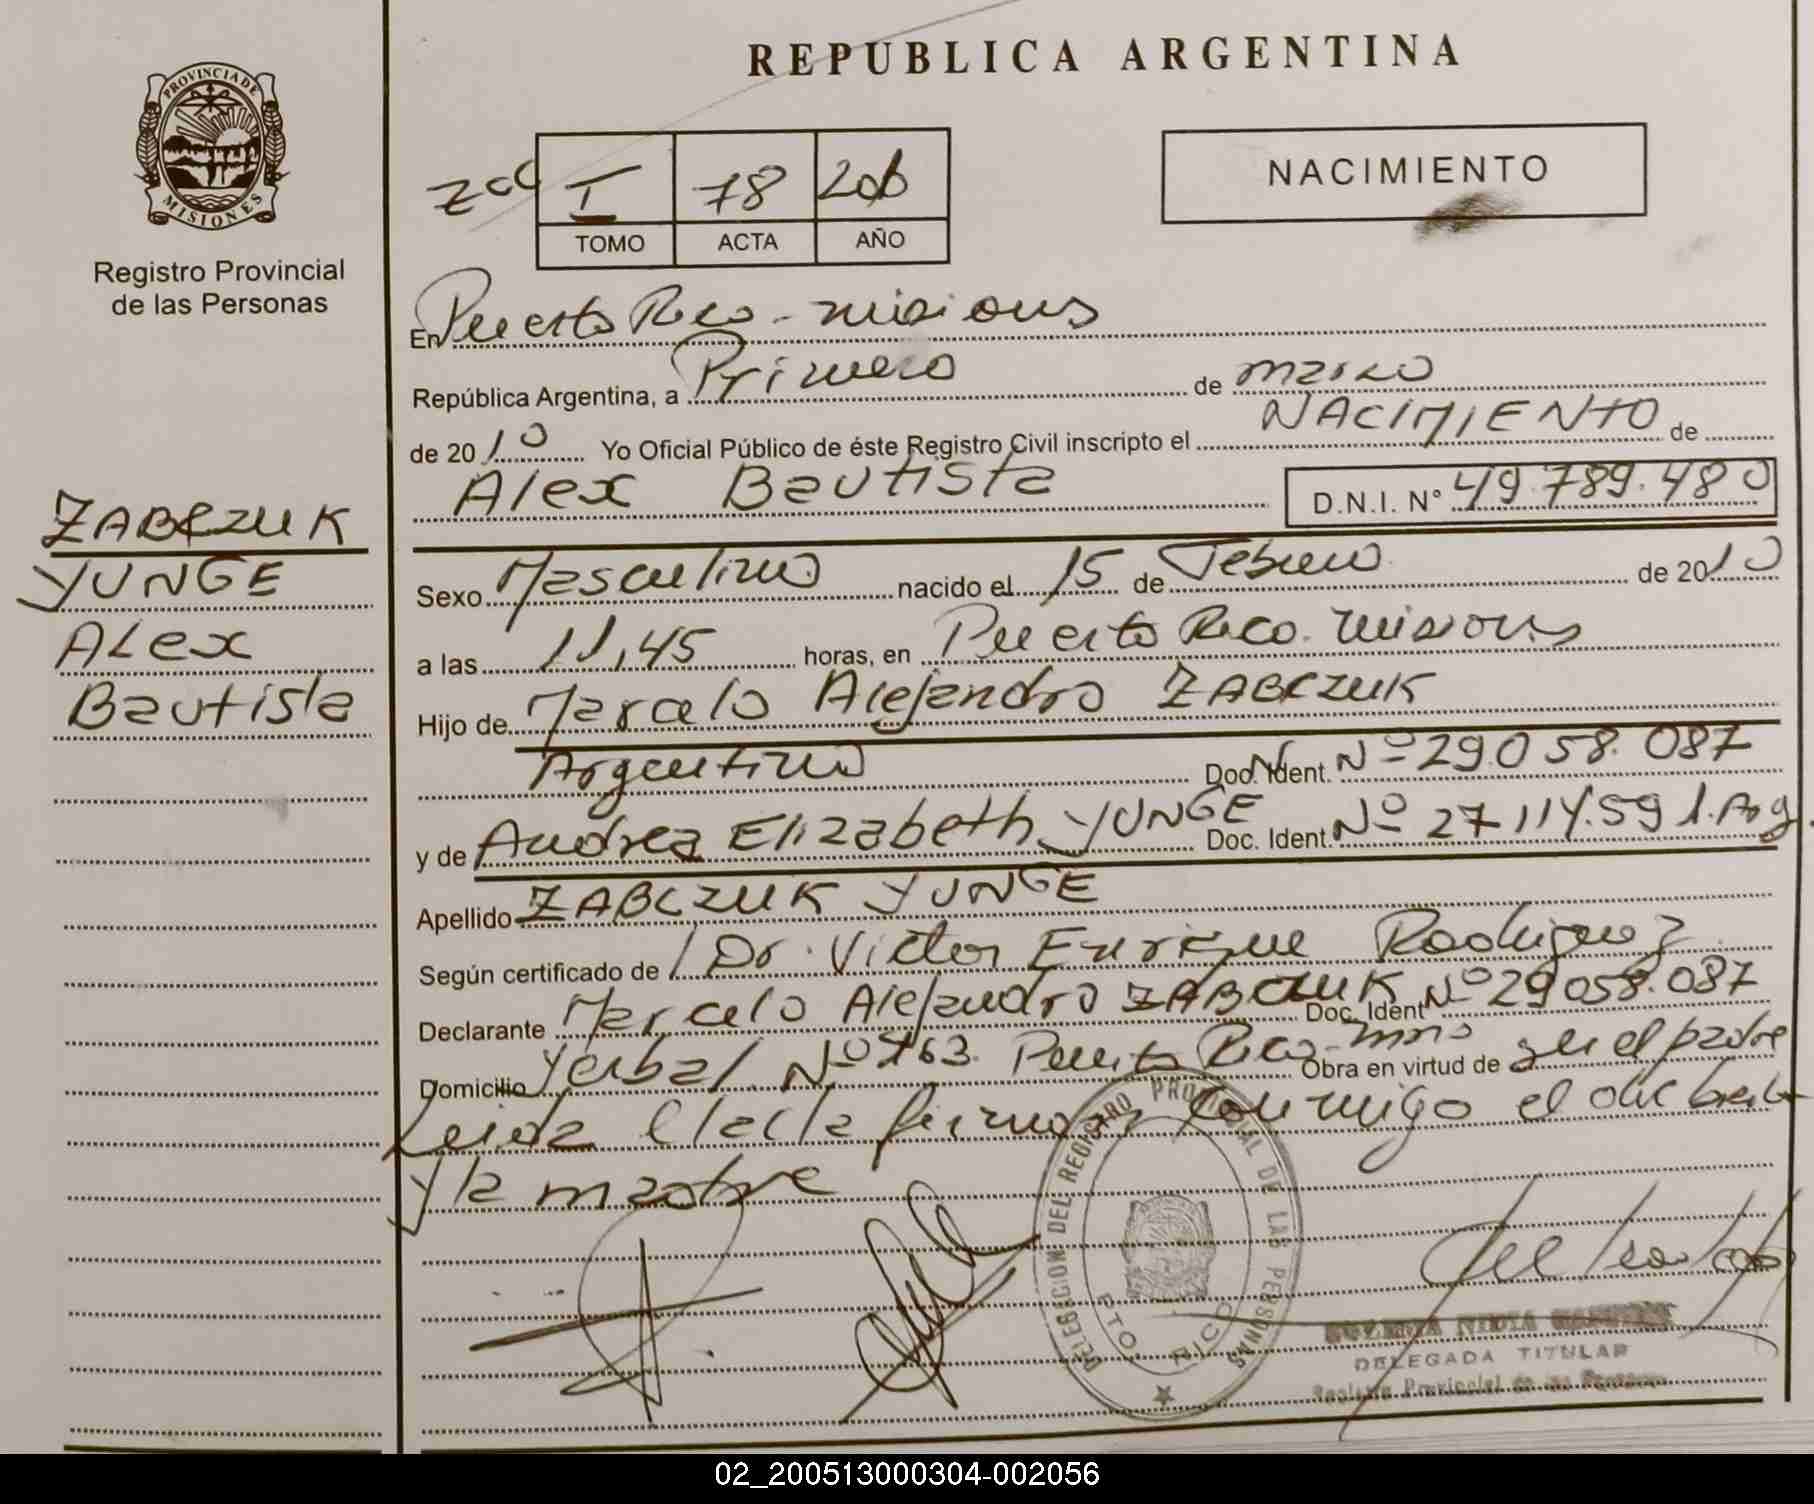 PROVINCIA DE
MISIONES
Registro Provincial
de las Personas
ZABCZUK
YUNGE
Alex
Bautista
REPUBLICA ARGENTINA
I 78
TOMO ACTA AÑO
NACIMIENTO
En Puerto Rico - misiones
República Argentina, a Primero de marzo
de 2010 Yo Oficial Público de éste Registro Civil inscripto el NACIMIENTO de
Alex Bautista D.N.I. N° 49.789.480
Sexo Masculino nacido el 15 de Febrero de 2010
a las 11,45 horas, en Puerto Rico. misiones
Hijo de Marcelo Alejandro ZABCZUK
Argentino Doc. Ident. Nº 29.058.087
y de Andrea Elizabeth YUNGE Doc. Ident. Nº 27.114.591. Arg
Apellido ZABCZUK YUNGE
Según certificado de Dr. Victor Enrique Rodriguez
Declarante Marcelo Alejandro ZABCZUK Doc. Ident Nº 29.058.087
Domicilio Yerbal Nº 763. Puerto Rico Obra en virtud de ser el padre
Leida el acta firman conmigo el declarante
y la madre
DELEGACION DEL REGISTRO PROVINCIAL DE LAS PERSONAS
PTO. RICO
DELEGADA TITULAR
Registro Provincial de las Personas
02_200513000304-002056